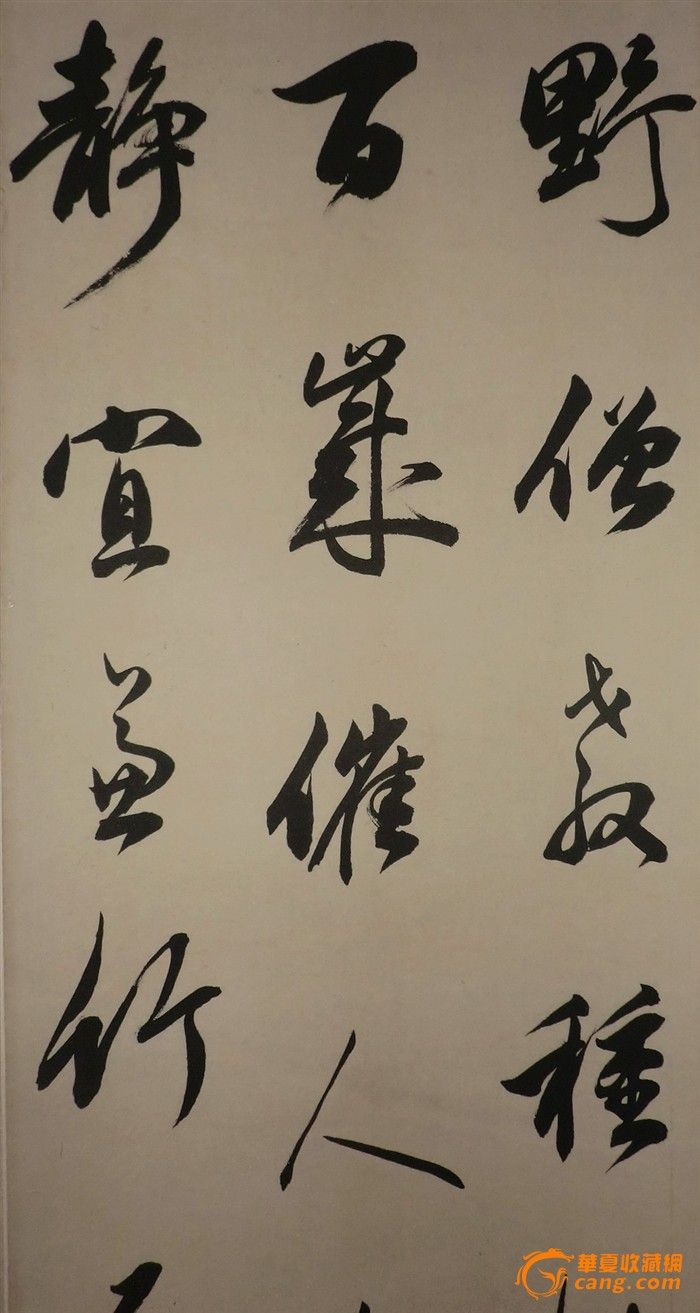 野僧教種
百歲催人
静宜兼竹
華夏收藏網
cang.com